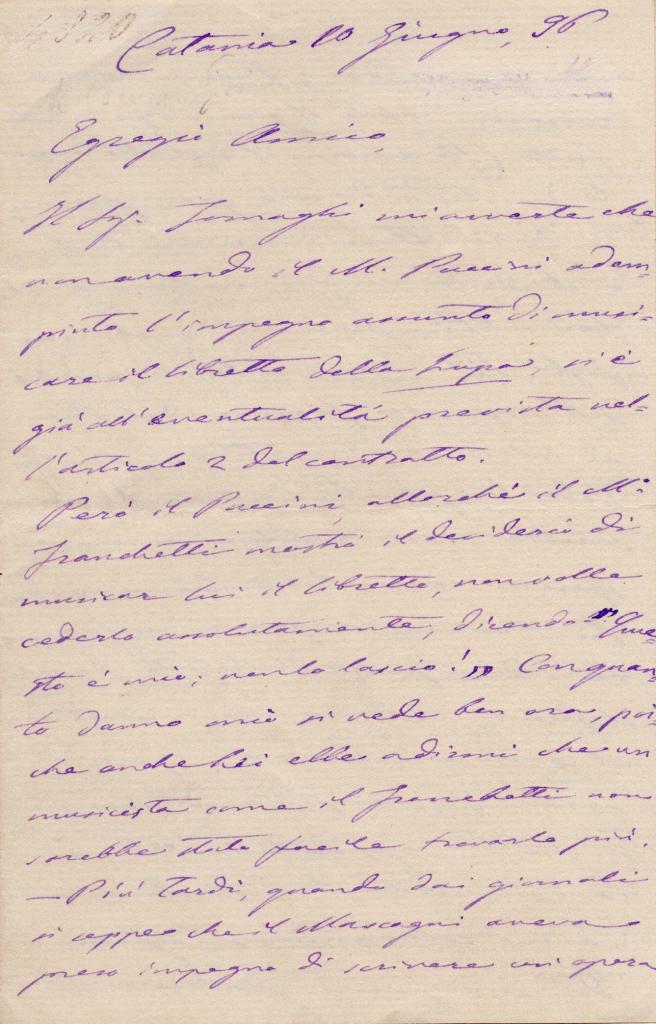 4820
Catania 10 Giugno, 96
Egregio Amico,
Il Sig. Tornaghi mi avverte che
non avendo il M. Puccini adem-
piuto l'impegno assunto di musi-
care il libretto della Lupa, si è
già all'eventualità prevista nel-
l'articolo 2 del contratto.
Però il Puccini, allorché il M.
Franchetti mostrò il desiderio di
musicar lui il libretto, non volle
cederlo assolutamente, dicendo "Que-
sto è mio; non lo lascio!" Con quan-
to danno mio si vede ben ora, poi-
che anche Lei ebbe a dirmi che un
musicista come il Franchetti non
sarebbe stato facile trovarlo più.
— Più tardi, quando dai giornali
si seppe che il Mascagni aveva
preso impegno di scrivere un'opera